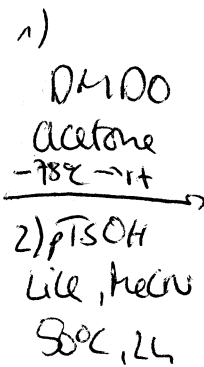 1)
DMDO
acetone
-78°C → rt
2) pTsOH
LiCl, MeCN
50°C, 2h